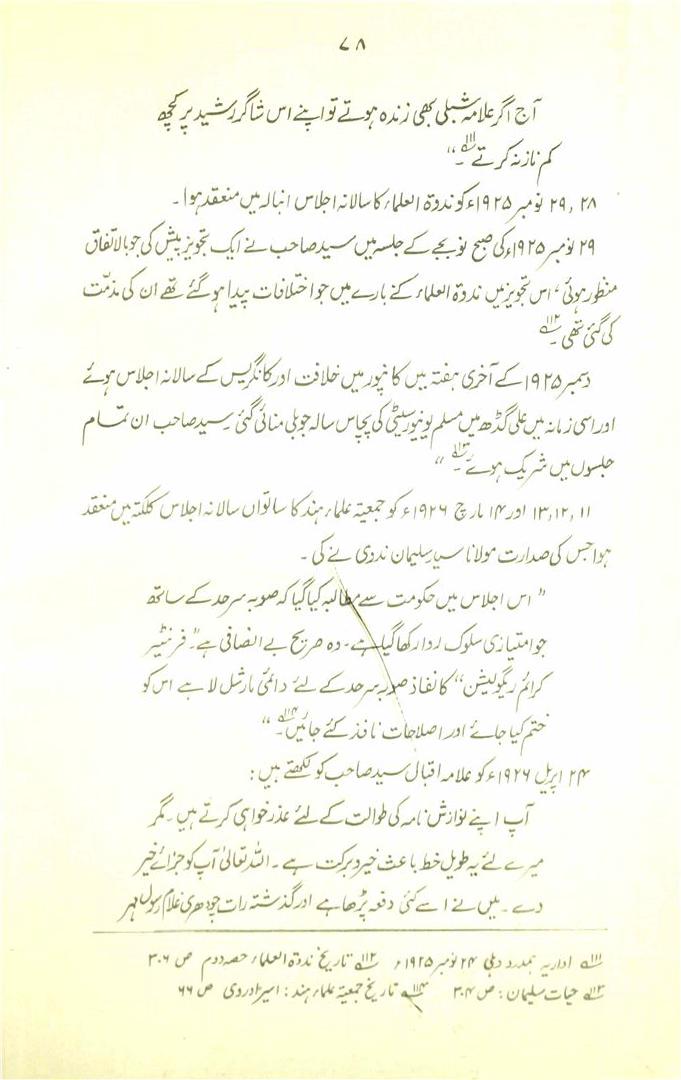 ۷۸
آج اگر علامہ شبلی بھی زندہ ہوتے تو اپنے اس شاگرد رشید پر کچھ
کم ناز نہ کرتے ۱۱۱؎۔"
۲۸، ۲۹ نومبر ۱۹۲۵ء کو ندوۃ العلماء کا سالانہ اجلاس انبالہ میں منعقد ہوا۔
۲۹ نومبر ۱۹۲۵ء کی صبح نو بجے کے جلسہ میں سید صاحب نے ایک تجویز پیش کی جو بالاتفاق
منظور ہوئی، اس تجویز میں ندوۃ العلماء کے بارے میں جو اختلافات پیدا ہوگئے تھے ان کی مذمّت
کی گئی تھی ۱۱۲؎۔
دسمبر ۱۹۲۵ء کے آخری ہفتہ میں کانپور میں خلافت اور کانگریس کے سالانہ اجلاس ہوئے
اور اسی زمانہ میں علی گڈھ میں مسلم یونیورسیٹی کی پچاس سالہ جوبلی منائی گئی۔ سید صاحب ان تمام
جلسوں میں شریک ہوے ۱۱۳؎۔"
۱۱، ۱۲، ۱۳ اور ۱۴ مارچ ۱۹۲۶ء کو جمعیۃ علماء ہند کا ساتواں سالانہ اجلاس کلکتہ میں منعقد
ہوا جس کی صدارت مولانا سید سلیمان ندوی نے کی۔
" اس اجلاس میں حکومت سے مطالبہ کیا گیا کہ صوبہ سرحد کے ساتھ
جو امتیازی سلوک روا رکھا گیا ہے۔ وہ صریح بے انصافی ہے"۔ فرنٹیر
کرائم ریگولیشن" کا نفاذ صوبہ سرحد کے لئے دائمی مارشل لا ہے اس کو
ختم کیا جائے اور اصلاحات نافذ کئے جائیں ۱۱۴؎۔"
۲۴ اپریل ۱۹۲۶ء کو علامہ اقبال سید صاحب کو لکھتے ہیں:
آپ اپنے نوازش نامہ کی طوالت کے لئے عذر خواہی کرتے ہیں۔ مگر
میرے لئے یہ طویل خط باعث خیر و برکت ہے۔ اللہ تعالیٰ آپ کو جزائے خیر
دے۔ میں نے اسے کئی دفعہ پڑھا ہے اور گذشتہ رات چودھری غلام رسول مہر
۱۱۱؎ اداریہ ہمدرد دہلی ۲۴ نومبر ۱۹۲۵ء ۱۱۲؎ تاریخ ندوۃ العلماء حصہ دوم ص ۳۰۶
۱۱۳؎ حیات سلیمان: ص ۳۰۴ ۱۱۴؎ تاریخ جمعیۃ علماء ہند: اسیر ادروی ص ۶۶